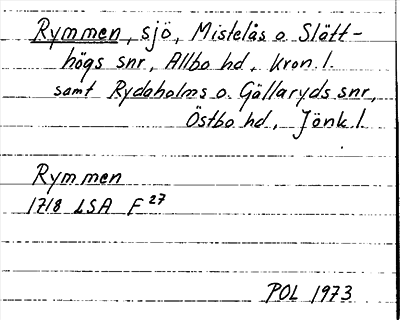 Rymmen, sjö, Mistelås o. Slätt-
högs snr, Allbo hd, kron. l.
samt Rydaholms o. Gällaryds snr,
Östbo hd, Jönk. l.
Rymmen
1718 LSA F 27
POL 1973